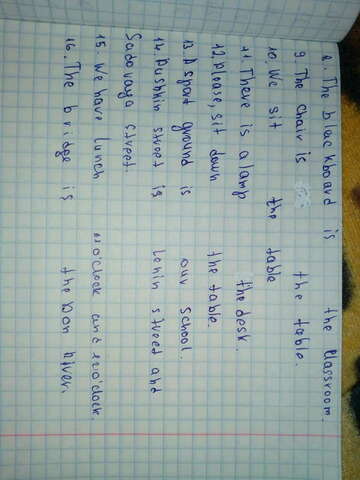 8. The blackboard is the classroom.
9. The chair is the table.
10. We sit the table
11. There is a lamp the desk.
12. please, sit down the table.
13 A sport ground is our school.
14. Pushkin street is Lenin street and
Sadovaya street.
15. We have lunch o'clock and o'clock.
16. The bridge is the Don River.